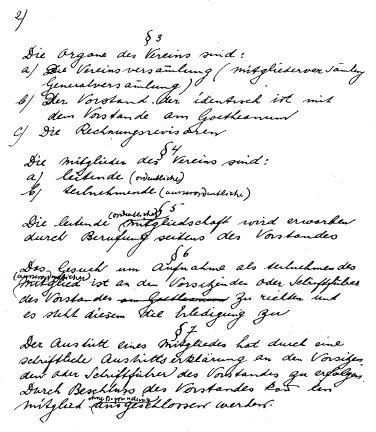 2)
§ 3
Die Organe des Vereins sind:
a) Die Vereinsversamlung (Mitgliederversamlung
Generalversamlung)
b) Der Vorstand der identisch ist mit
dem Vorstande am Goetheanum
c) Die Rechnungsrevisoren
§ 4
Die Mitglieder des Vereins sind:
a) leitende (ordentliche)
b) teilnehmende (ausserordentliche)
§ 5
(ordentliche)
Die leitende Mitgliedschaft wird erworben
durch Berufung seitens des Vorstandes
§ 6
Das Gesuch um Aufnahme als teilnehmendes
(ausserordentliches)
Mitglied ist an den Vorsitzenden oder Schriftführer
des Vorstandes am Goetheanum zu richten und
es steht diesem die Erledigung zu
§ 7
Der Austritt eines Mitgliedes hat durch eine
schriftliche Austrittserklärung an den Vorsitzen
den oder Schriftführer des Vorstandes zu erfolgen.
Durch Beschluss des Vorstandes kan ein
ohne Begründung
Mitglied ausgeschlossen werden.